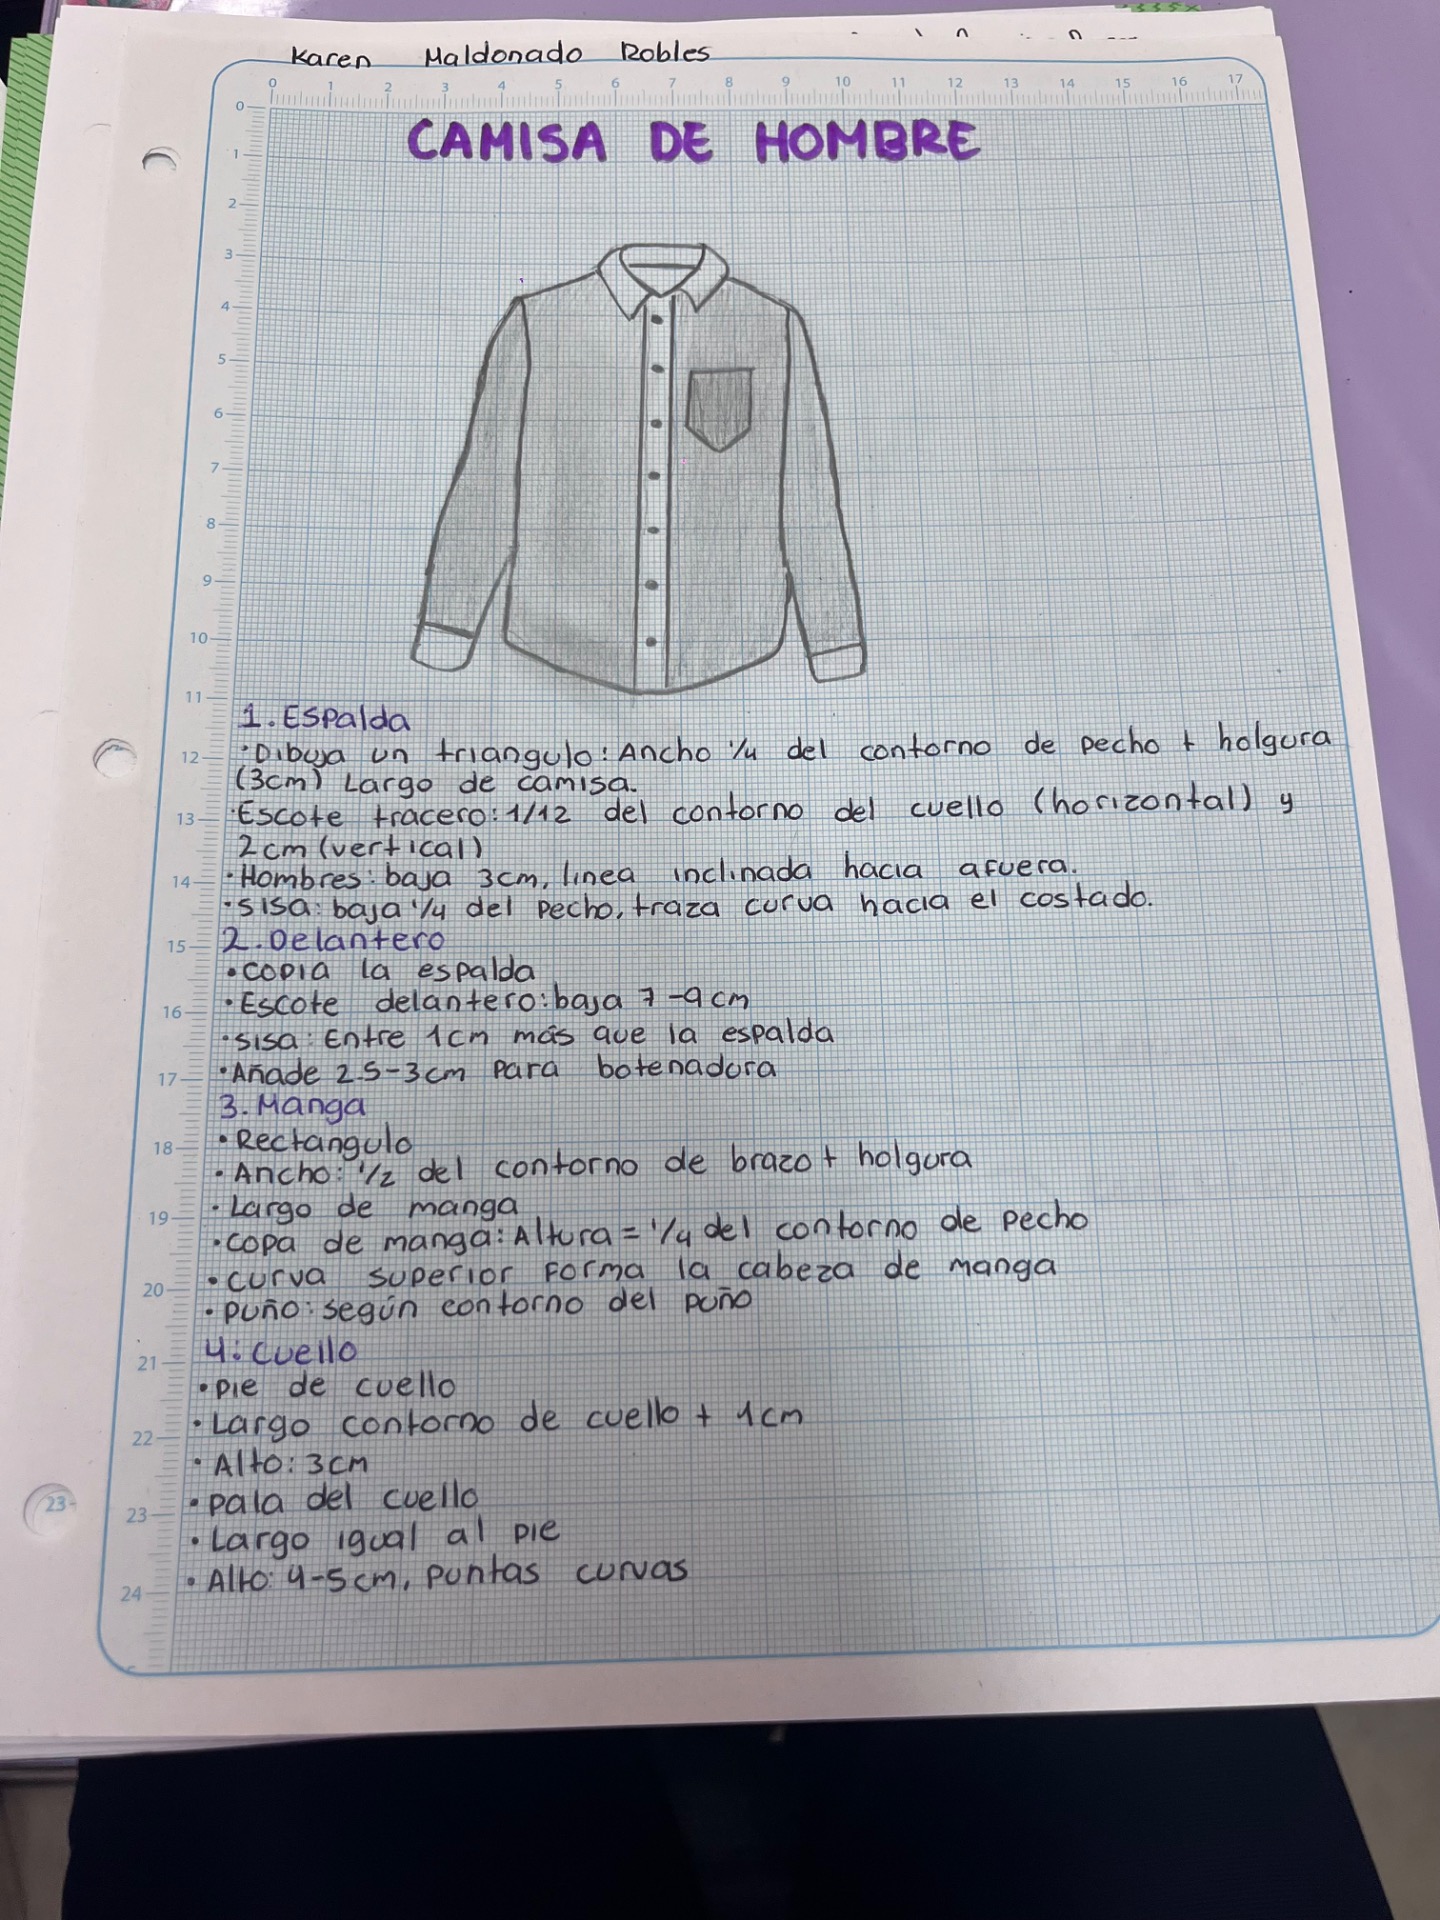 Karen Maldonado Robles
0 1 2 3 4 5 6 7 8 9 10 11 12 13 14 15 16 17
0
CAMISA DE HOMBRE
1
2
3
4
5
6
7
8
9
10
11
1. Espalda
12 · Dibuja un triangulo: Ancho 1/4 del contorno de pecho + holgura
(3cm) Largo de camisa.
13 · Escote tracero: 1/12 del contorno del cuello (horizontal) y
2cm (vertical)
14 · Hombres: baja 3cm, linea inclinada hacia afuera.
· sisa: baja 1/4 del pecho, traza curva hacia el costado.
15 2. Delantero
· copia la espalda
16 · Escote delantero: baja 7-9cm
· sisa: Entre 1cm más que la espalda
17 · Añade 2.5-3cm para botenadura
3. Manga
18 · Rectangulo
· Ancho: 1/2 del contorno de brazo + holgura
19 · Largo de manga
· copa de manga: Altura = 1/4 del contorno de pecho
20 · curva superior forma la cabeza de manga
· puño: según contorno del puño
21 4: cuello
· pie de cuello
22 · Largo contorno de cuello + 1cm
· Alto: 3cm
23 23 · pala del cuello
· Largo igual al pie
24 · Alto: 4-5cm, puntas curvas